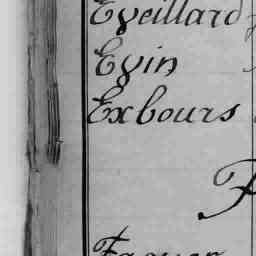 Eveillard
Evin
Exbours
F